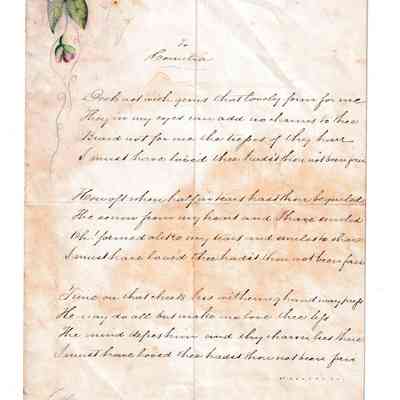 To
Cornelia
Deck not with gems that lovely form for me
They in my eyes can add no charms to thee
Braid not for me the tresses of thy hair
I must have loved thee hadst thou not been fair
How oft when half in tears hast thou beguiled
The sorrow from my heart and I have smiled
Oh! formed alike my tears and smiles to share
I must have loved thee hadst thou not been fair
Time on that cheek his withering hand may press
He may do all but make me love thee less
The mind defies him and thy charms lies there
I must have loved thee hadst thou not been fair